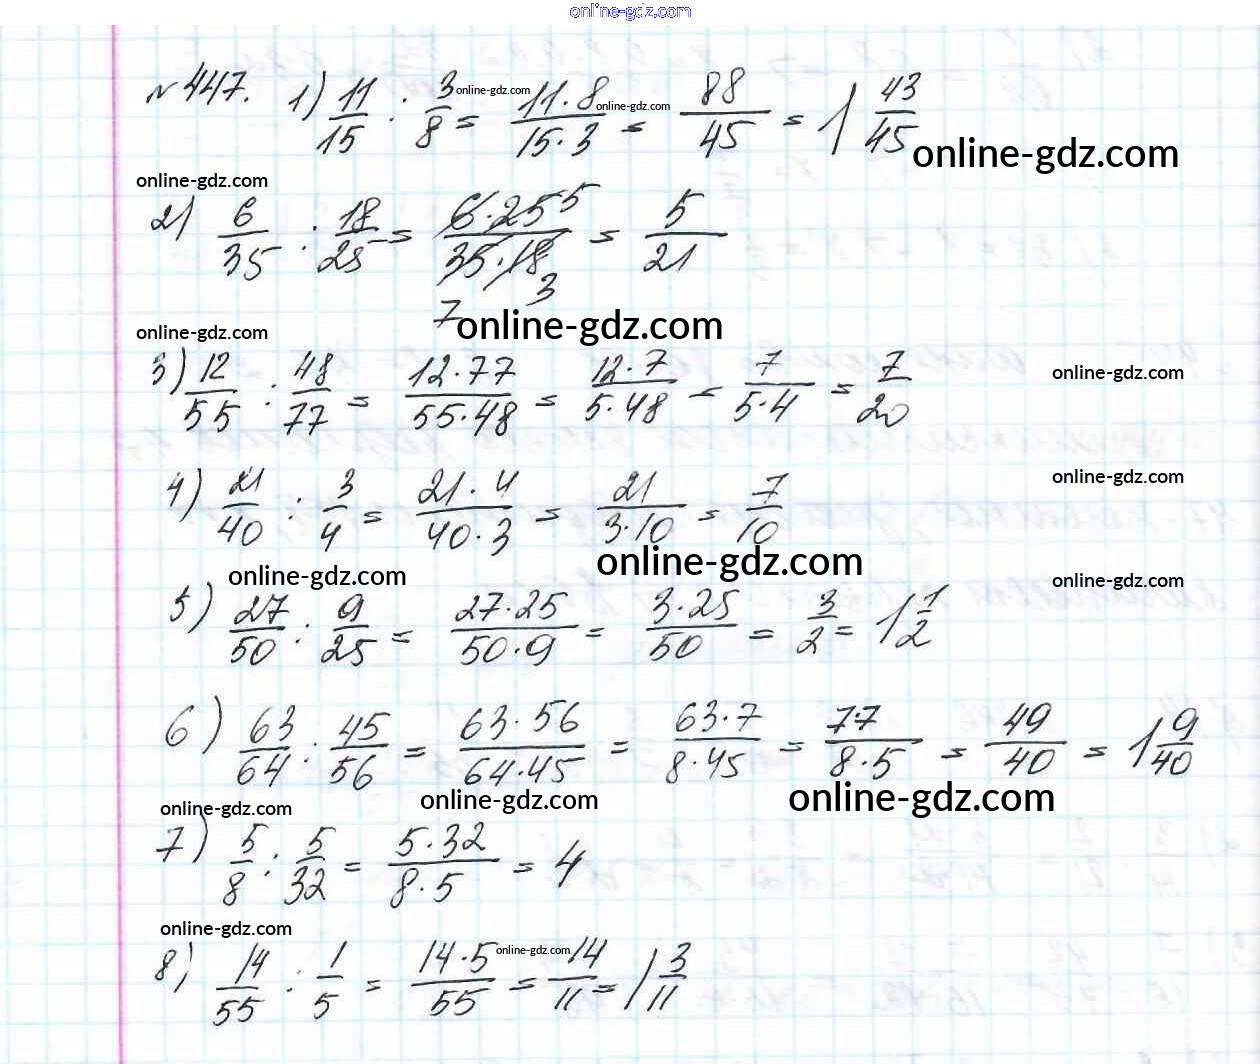 online-gdz.com
№447. 1) 11/15 : 3/8 = 11·8/15·3 = 88/45 = 1 43/45
online-gdz.com
online-gdz.com
online-gdz.com
online-gdz.com
2) 6/35 : 18/25 = 6·25 5/35·18 7 3 = 5/21
online-gdz.com
online-gdz.com
3) 12/55 : 48/77 = 12·77/55·48 = 12·7/5·48 = 7/5·4 = 7/20
online-gdz.com
4) 21/40 : 3/4 = 21·4/40·3 = 21/3·10 = 7/10
online-gdz.com
online-gdz.com
online-gdz.com
online-gdz.com
5) 27/50 : 9/25 = 27·25/50·9 = 3·25/50 = 3/2 = 1 1/2
6) 63/64 : 45/56 = 63·56/64·45 = 63·7/8·45 = 7·7/8·5 = 49/40 = 1 9/40
online-gdz.com
online-gdz.com
online-gdz.com
7) 5/8 : 5/32 = 5·32/8·5 = 4
online-gdz.com
8) 14/55 : 1/5 = 14·5/55 = 14/11 = 1 3/11
online-gdz.com